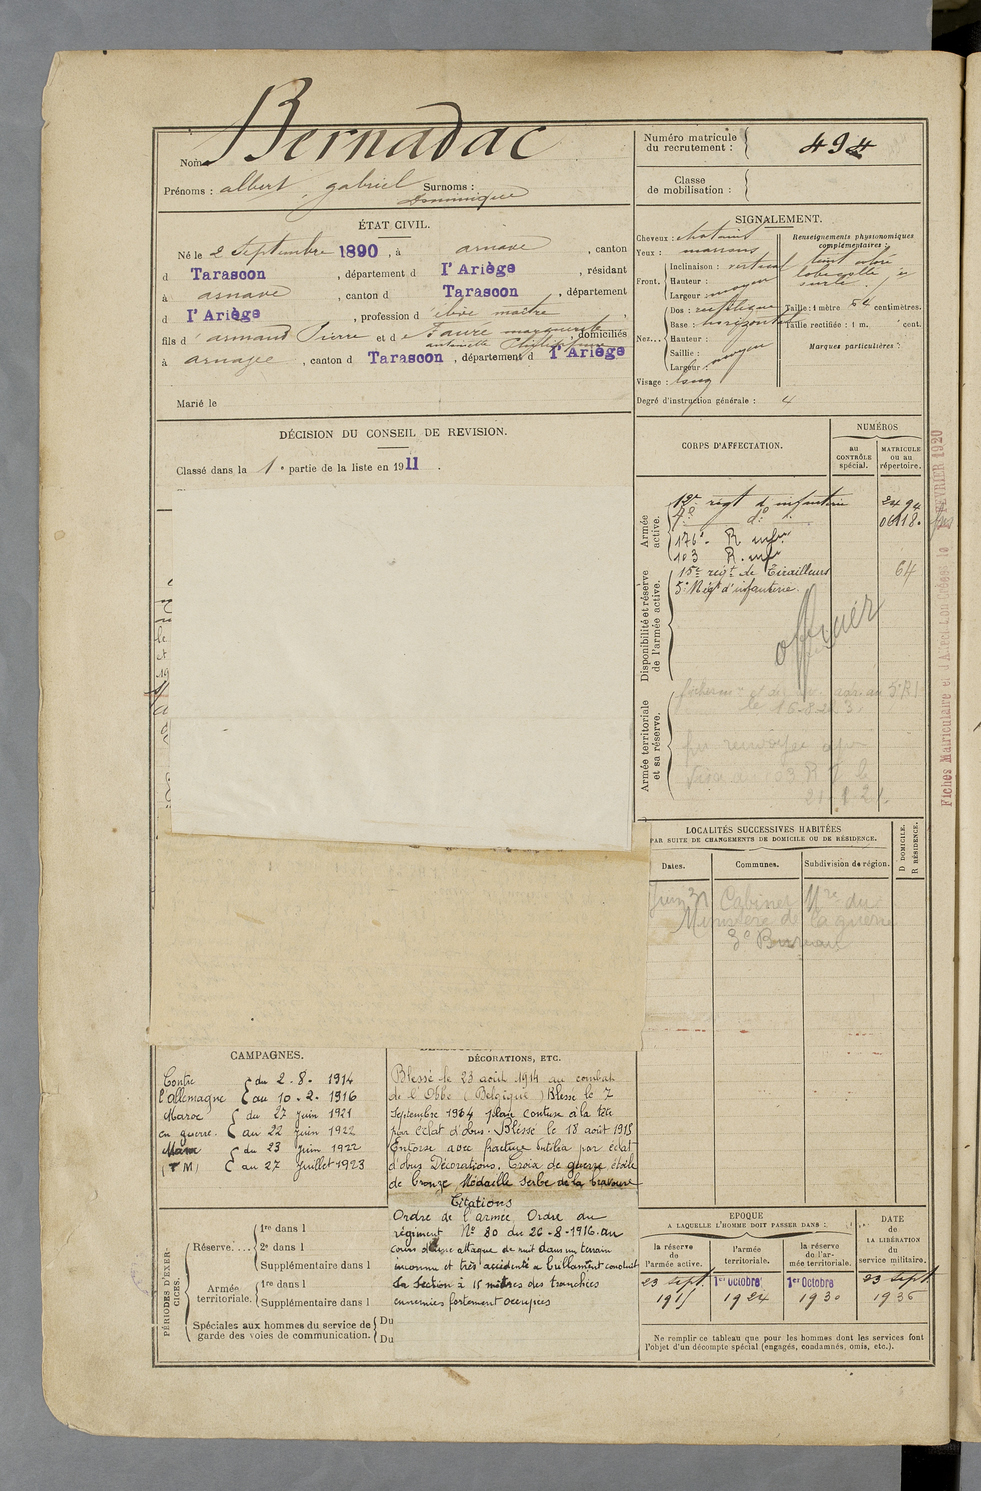 Nom Bernadac
Prénoms : albert gabriel Surnoms :
Dominique
Numéro matricule
du recrutement : 494
Classe
de mobilisation :
ÉTAT CIVIL.
Né le 2 Septembre 1890, à arnave, canton
d Tarascon, département d l'Ariège, résidant
à arnave, canton d Tarascon, département
d l'Ariège, profession d' élève maître,
fils d' armand Pierre et d e Faure marguerite
antoinette domiciliés
à arnave, canton d Tarascon, département d l'Ariège
Marié le
SIGNALEMENT.
Cheveux : chatains
Yeux : marrons
Front.
Inclinaison : vertical
Hauteur :
Largeur : moyen
Nez...
Dos : rectiligne
Base : horizontal
Hauteur :
Saillie :
Largeur : moyen
Visage : long
Renseignements physionomiques
complémentaires :
teint coloré
Taille : 1 mètre 64 centimètres.
Taille rectifiée : 1 m. cent.
Marques particulières :
Degré d'instruction générale : 4
DÉCISION DU CONSEIL DE REVISION.
Classé dans la 1e partie de la liste en 1911.
CORPS D'AFFECTATION.
NUMÉROS
au
CONTRÔLE
spécial.
MATRICULE
ou au
répertoire.
Armée
active.
12e régt d'infanterie 2494
7e do 06118.
176e R. infie
103 R. infie
Disponibilité et réserve
de l'armée active.
15e régt de Tirailleurs 64
5e Régt d'infanterie.
officier
Armée territoriale
et sa réserve.
5e R I
le 16-8-23
21.8.21.
Fiches Matriculaire et d'Affect
FEVRIER 1920
LOCALITÉS SUCCESSIVES HABITÉES
PAR SUITE DE CHANGEMENTS DE DOMICILE OU DE RÉSIDENCE.
Dates.
Communes.
Subdivision de région.
D DOMICILE.
R RÉSIDENCE.
Cabinet Mre du
Ministère de la guerre
CAMPAGNES.
Contre du 2.8.1914
l'Allemagne au 10.2.1916
Maroc du 27 juin 1921
en guerre. au 22 juin 1922
Maroc du 23 juin 1922
(T M) au 27 Juillet 1923
DÉCORATIONS, ETC.
Blessé le 23 août 1914 au combat
de l'Obbe (Belgique) Blessé le 7
Septembre 1964 plaie contuse à la tête
par éclat d'obus. Blessé le 18 août 1915
Entorse avec fracture tibiléa par éclat
d'obus Décorations. Croix de guerre étoile
de bronze, Médaille Serbe de la bravoure
Citations
Ordre de l'armée Ordre du
régiment No 80 du 26-8-1916. au
cours d'une attaque de nuit dans un terrain
inconnu et très accidenté a brillament conduit
sa Section à 15 mètres des tranchées
ennemies fortement occupées
PÉRIODES D'EXERCICES.
Réserve....
1re dans l
2e dans l
Supplémentaire dans l
Armée
territoriale.
1re dans l
Supplémentaire dans l
Spéciales aux hommes du service de
garde des voies de communication.
Du
Du
EPOQUE
A LAQUELLE L'HOMME DOIT PASSER DANS :
la réserve
de
l'armée active.
l'armée
territoriale.
la réserve
de l'ar-
mée territoriale.
DATE
de
LA LIBÉRATION
du
service militaire.
23 sept. 1er Octobre 1er Octobre 23 sept.
1915 1924 1930 1936
Ne remplir ce tableau que pour les hommes dont les services font
l'objet d'un décompte spécial (engagés, condamnés, omis, etc.).